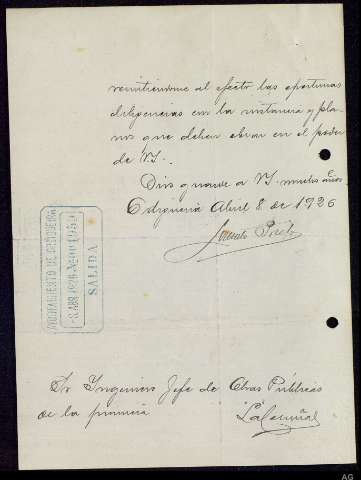 remitiéndome al efecto las oportunas
diligencias con la instancia y pla-
nos que deben obrar en el poder
de VS.
Dios guarde a VS. muchos años.
Adjuneria Abril 8 de 1926
AYUNTAMIENTO DE
8 ABR 1926
SALIDA
Sr Ingeniero Jefe de Obras Públicas
de la provincia
La Coruña
AG